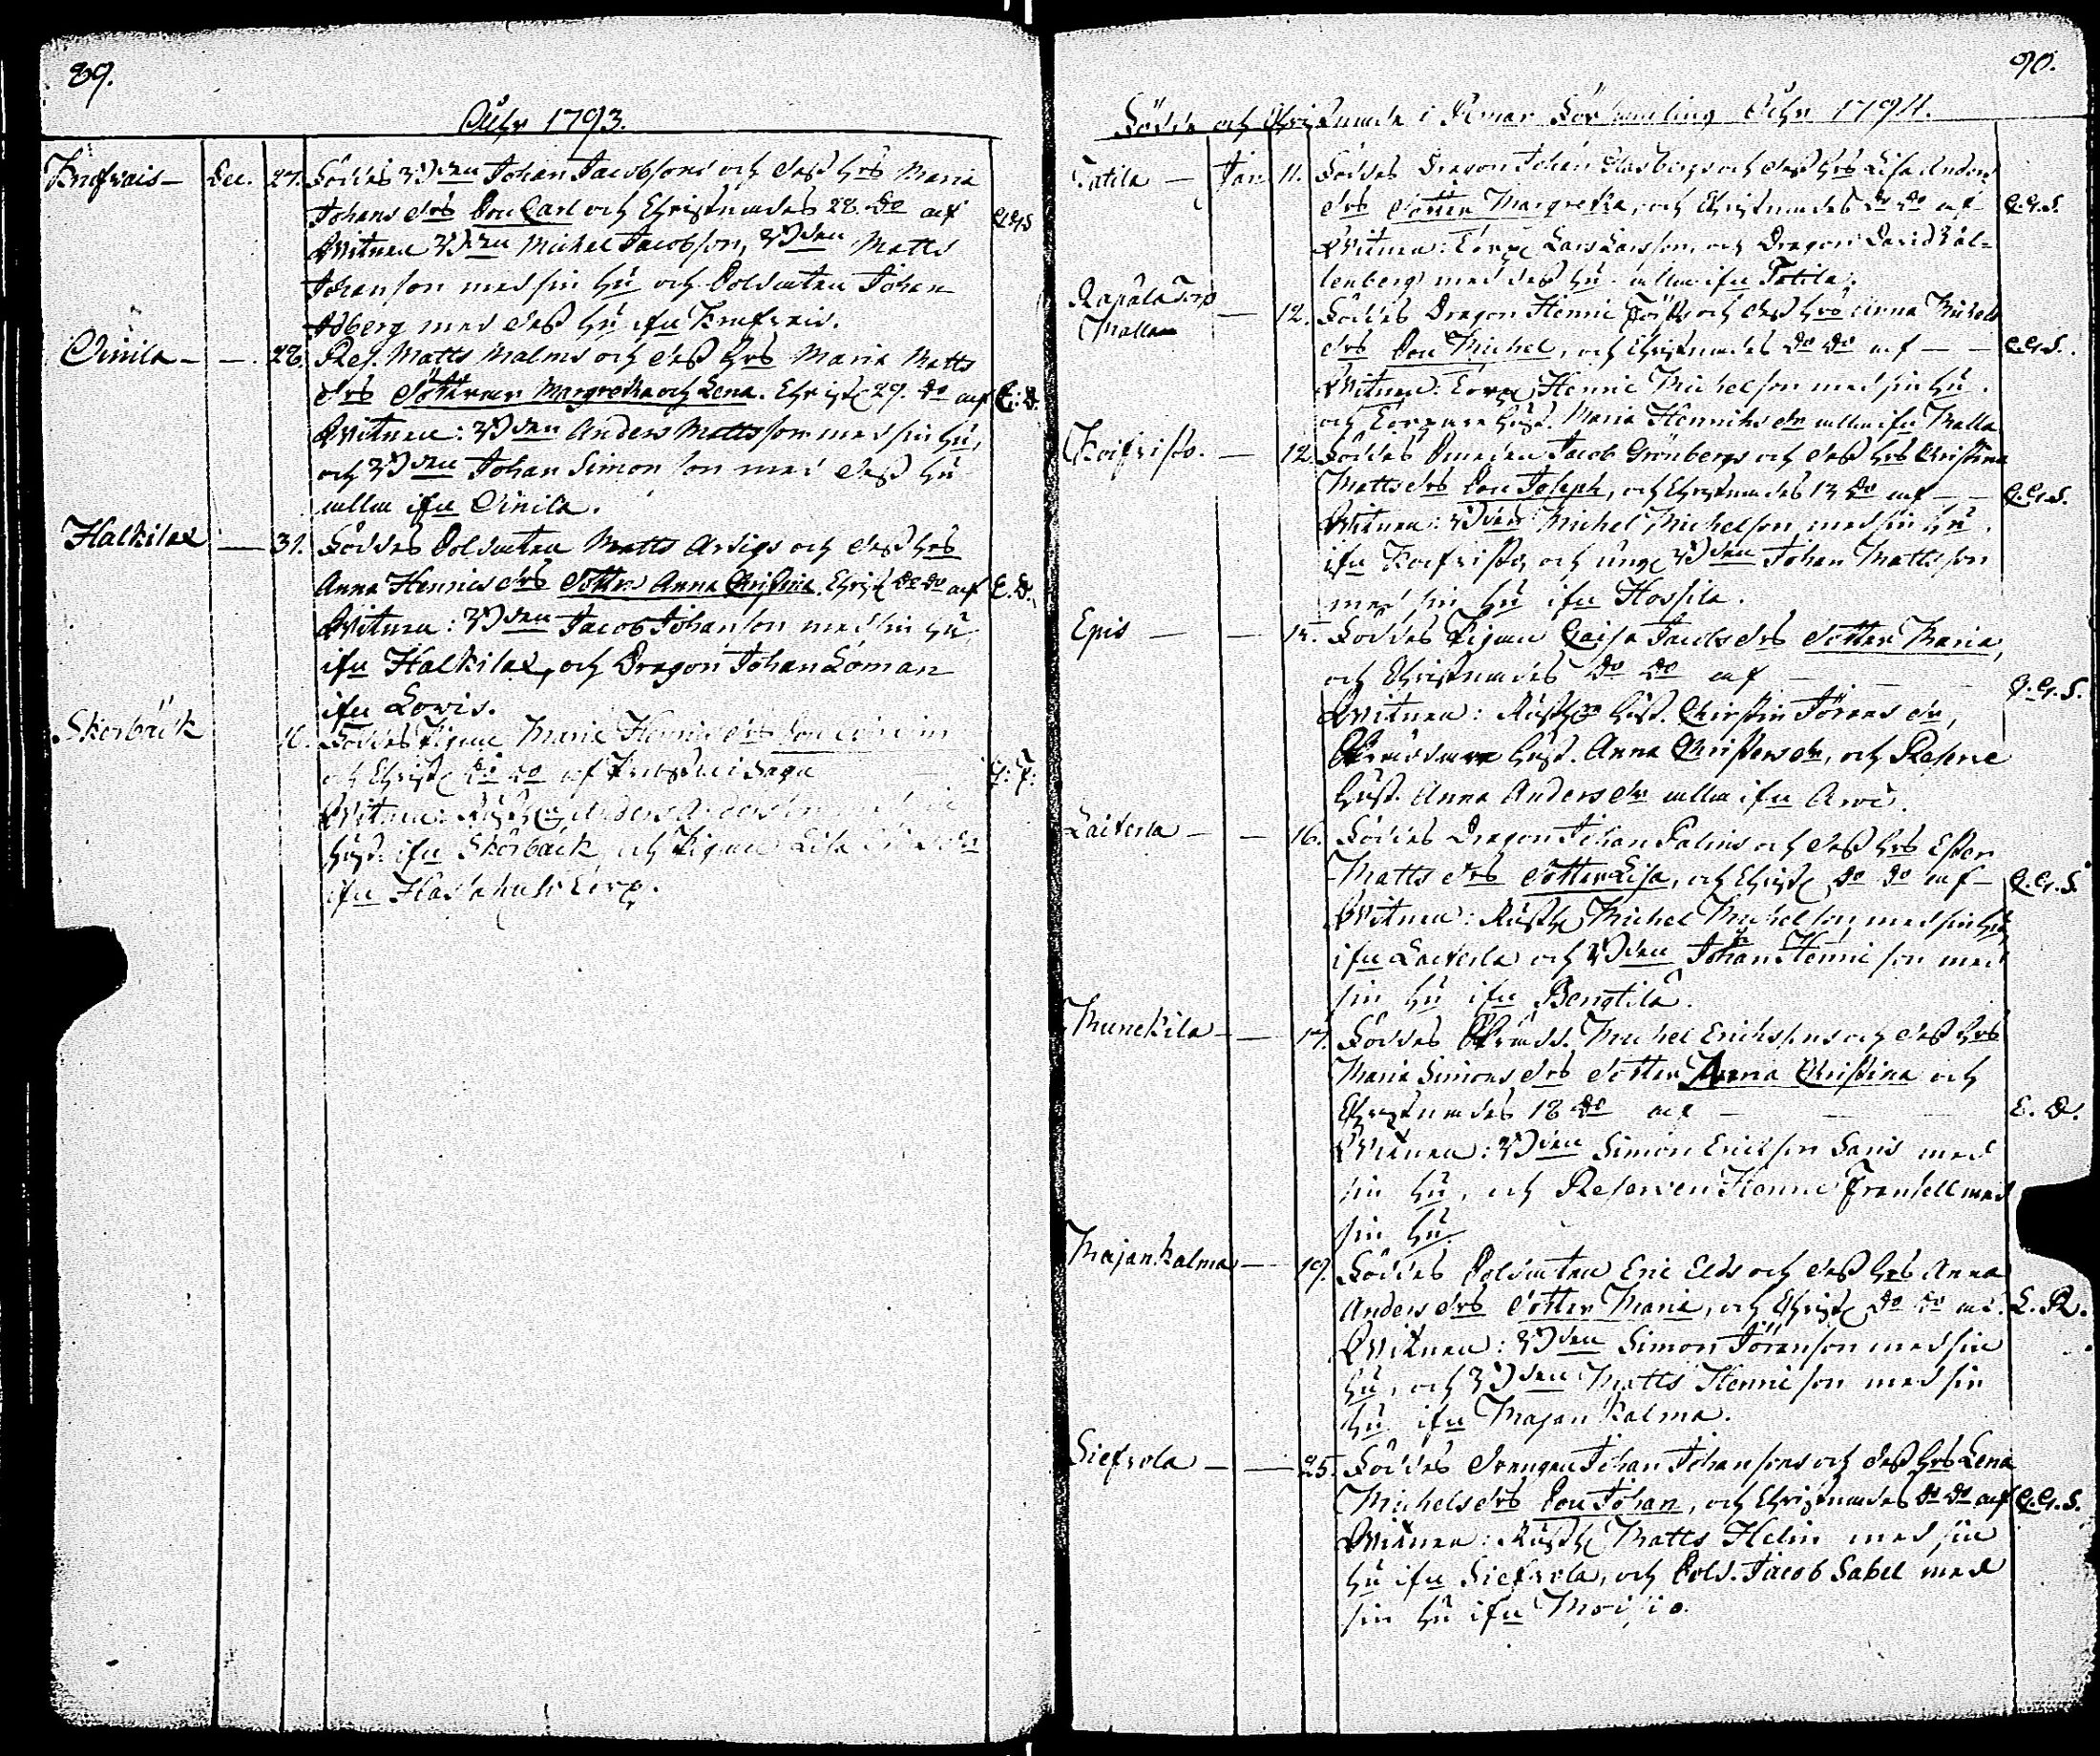 89.
Åhr 1793.
Knefrais — Dec. 27. Föddes Bden Johan Jacobsons och dess hrs Maria
Johans drs Son Carl och Christnades 28. do af E.G.S.
Witnen Bden Michel Jacobson, Bden Matts
Johanson med sin hu och Soldaten Johan
Asberg med dess hu ifrn Knefrais.
Vinila — — 28. Res. Matts Malms och dess hrs Maria Matts
drs Döttrar Margretha och Lena. Christ. 29. do af E: D.
Witnen: Bden Anders Mattsson med sin hu,
och Bden Johan Simonson med dess hu
alla ifrn Vinila.
Halkilax — 31. Föddes Soldaten Matts Arsigs och dess hrs
Anna Henrics drs Dotter Anna Christina. Christ. do do af E. D.
Witnen: Bden Jacob Johanson med sin hu
ifrn Halkilax, och Dragon Johan Loman
ifrn Lowis.
Skorbäck 16. Föddes Pigan Maria Henrics drs Son
och Christ. do do af
Witnen: Rusth. Anders Anderson
hust. ifrn Skorbäck, och Pigan Lisa
ifrn Torp.
90.
Födde och Christnade i Pemar Församling Åhr 1794.
Tatila — Jan 11. Föddes Dragon Johan Glasbergs och dess hrs Lisa Anders
drs Dotter Margretha, och Christnades do do af E.G.S.
Witnen: Torp. Lars Larsson, och Dragon David Väl-
lenberg med dess hu alla ifrn Tatila.
Rapala Torp — 12. Föddes Dragon Henric Försts och dess hrs Anna Michels
Malla drs Son Michel, och Christnades do do af — — E.G.S.
Witnen: Torp. Henric Michelson med sin hu.
och Torpare hust. Maria Henriks dr alla ifrn Malla
Koifristo. — 12. Föddes Smeden Jacob Grönbergs och dess hrs Christina
Matts drs Son Joseph, och Christnades 13 do af — — E.G.S.
Witnen: Bden Michel Michelson med sin hu
ifrn Koifristo, och unge Bden Johan Mattsson
med sin hu ifrn Hossila.
Epis — — 15. Föddes Pigan Caisa Jacobs drs Dotter Maria,
och Christnades do do af — — — E.G.S.
Witnen: Rusth. hust. Christin Jörans dr,
Bonde hust. Anna Christers dr, och Reserve
hust. Anna Anders dr alla ifrn Arvi.
Laiterla — — 16. Föddes Dragon Johan Palms och dess hrs Ester
Matts drs Dotter Lisa, och Christ. do do af — E.G.S.
Witnen: Rusth. Michel Michelson, med sin hu
ifrn Laiterla och Bden Johan Henricson med
sin hu ifrn Bengtilä.
Munckila — — 17. Föddes Michel Erichsons och dess hrs
Maria Simons drs Dotter Anna Christina och
Christnades 18 do af — — — E. D.
Witnen: Bden Simon Ericsson Saris med
sin hu, och Reserven Henric Fransell med
sin hu.
Majankalma — 19. Föddes Soldaten Eric Elds och dess hrs Anna
Anders drs Dotter Maria, och Christ. do do af. L. R.
Witnen: Bden Simon Jöranson med sin
hu, och Bden Matts Henricson med sin
hu ifrn Majankalma.
Siefvola — — 25. Föddes Drengen Johan Johansons och dess hrs Lena
Michels drs Son Johan, och Christnades do do af E.G.S.
Witnen: Rusth. Matts Helin med sin
hu ifrn Siefvola, och Sold. Jacob Sabel med
sin hu ifrn Moisio.